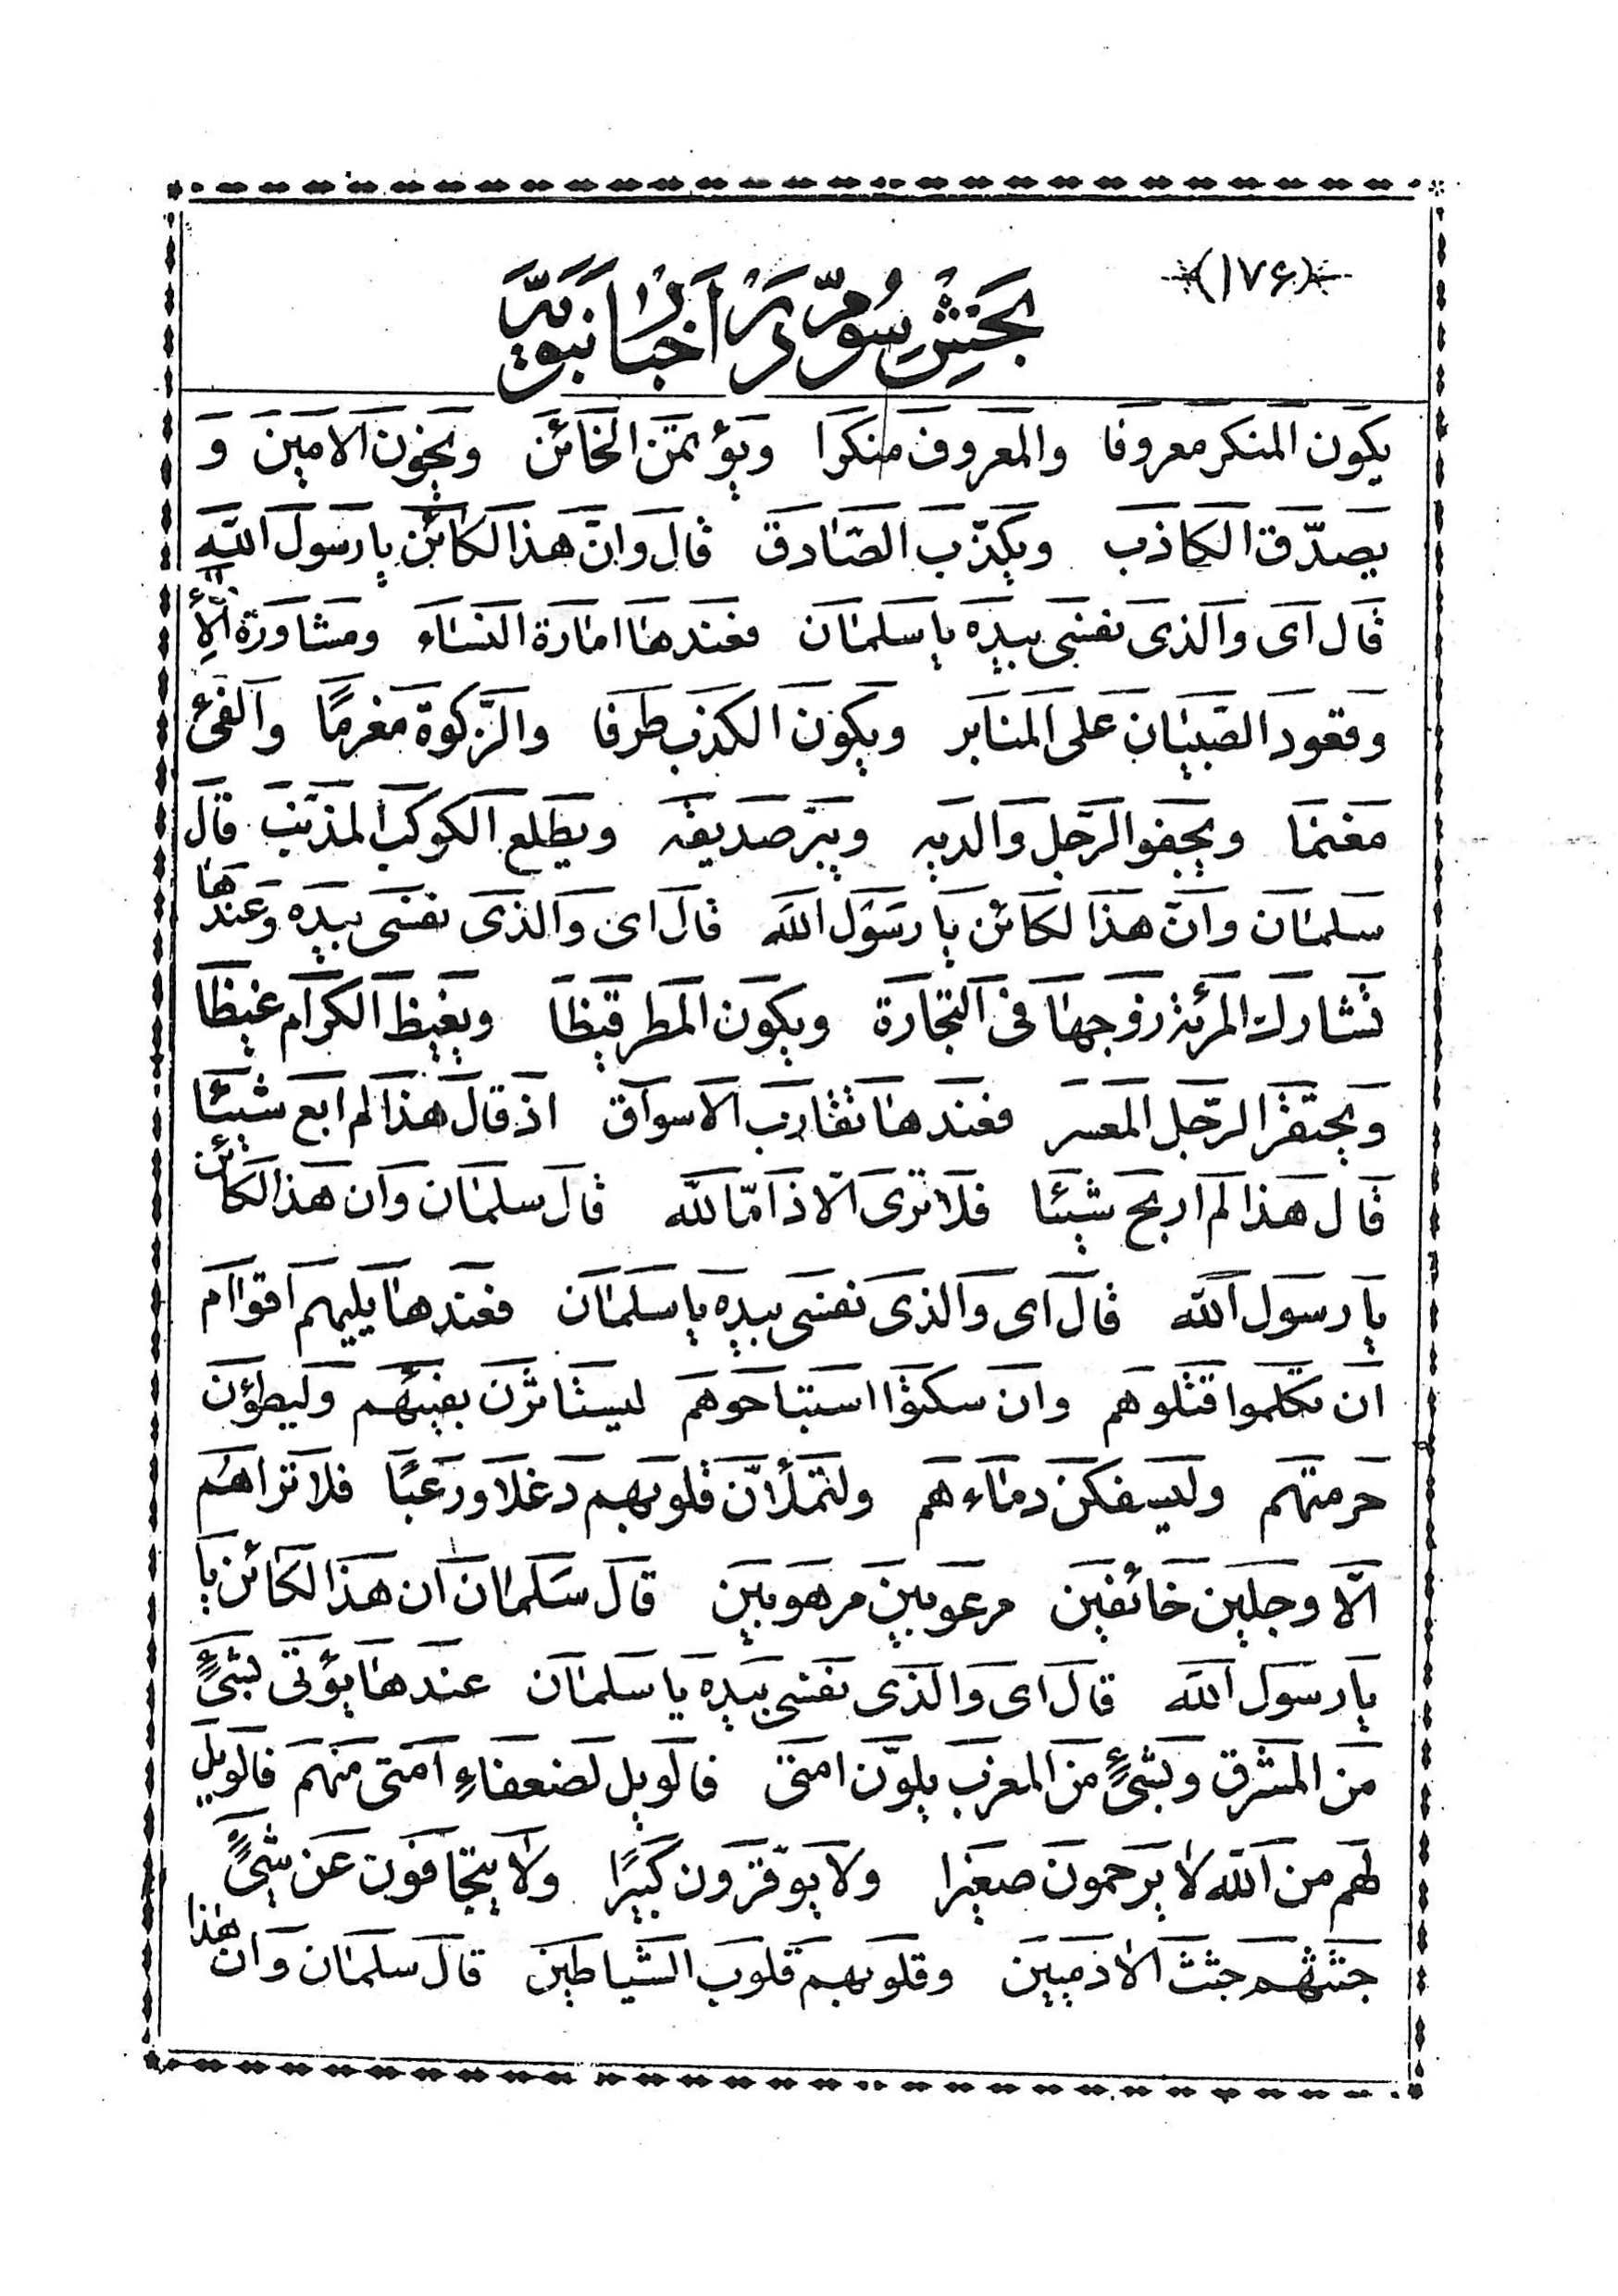 (۱۷۶)
بخش سوم در اخبار نبویه
یکون المنکر معروفا والمعروف منکرا ویؤتمن الخائن ویخون الامین و
یصدّق الکاذب ویکذّب الصّادق قال وانّ هذا لکائن یا رسول اللّه
قال ای والذی نفسی بیده یا سلمان فعندها امارة النساء ومشاورة الاِ
وقعود الصّبیان علی المنابر ویکون الکذب طرفا والزّکوة مغرمًا والفئ
مغنما ویجفوا الرّجل والدیه ویبرّ صدیقه ویطلع الکوکب المذنّب قال
سلمان وانّ هذا لکائن یا رسول اللّه قال ای والذی نفسی بیده وعندها
تشارک المرئة زوجها فی التجارة ویکون المطر قیظا ویغیظ الکرام غیظا
ویحتقر الرّجل المعسر فعندها تقارب الاسواق اذ قال هذا لم ابع شیئا
قال هذا لم اربح شیئا فلا تری الّا ذامّا للّه قال سلمان وان هذا لکائن
یا رسول اللّه قال ای والذی نفسی بیده یا سلمان فعندها یلیهم اقواام
ان تکلموا قتلوهم وان سکتوا استباحوهم لیستاثرن بفیئهم ولیطؤن
حرمتهم ولیسفکن دماءهم ولتملأنّ قلوبهم دغلا ورعبًا فلا تراهم
الّا وجلین خائفین مرعوبین مرهوبین قال سلمان ان هذا لکائن یا
یا رسول اللّه قال ای والذی نفسی بیده یا سلمان عندها یؤتی بشئٍ
من المشرق وبشئٍ من المغرب یلوّن امتی فالویل لضعفاءِ امتی منهم فالویل
لهم من اللّه لا یرحمون صغیرا ولا یوقّرون کبیرًا ولا یتجافون عن شئٍ
جثثهم جثث الادمیین وقلوبهم قلوب الشیاطین قال سلمان وان هذا